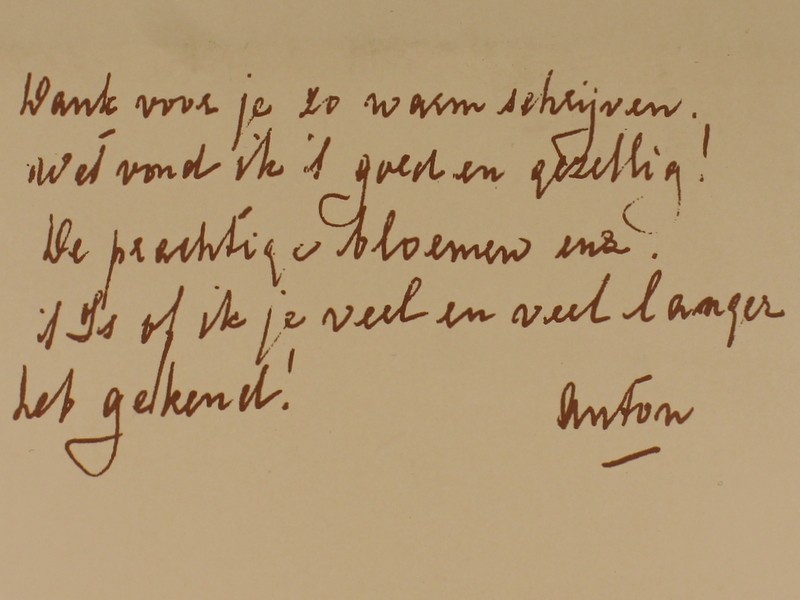 Dank voor je zo warm schrijven.
Wat vond ik 't goed en gezellig!
De prachtige bloemen enz.
't Is of ik je veel en veel langer
heb gekend!
Anton